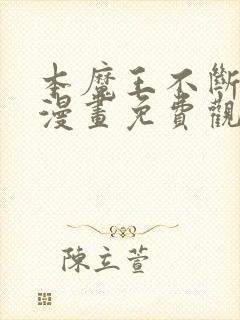 本魔王不斷
漫畫免費觀
陳立萱